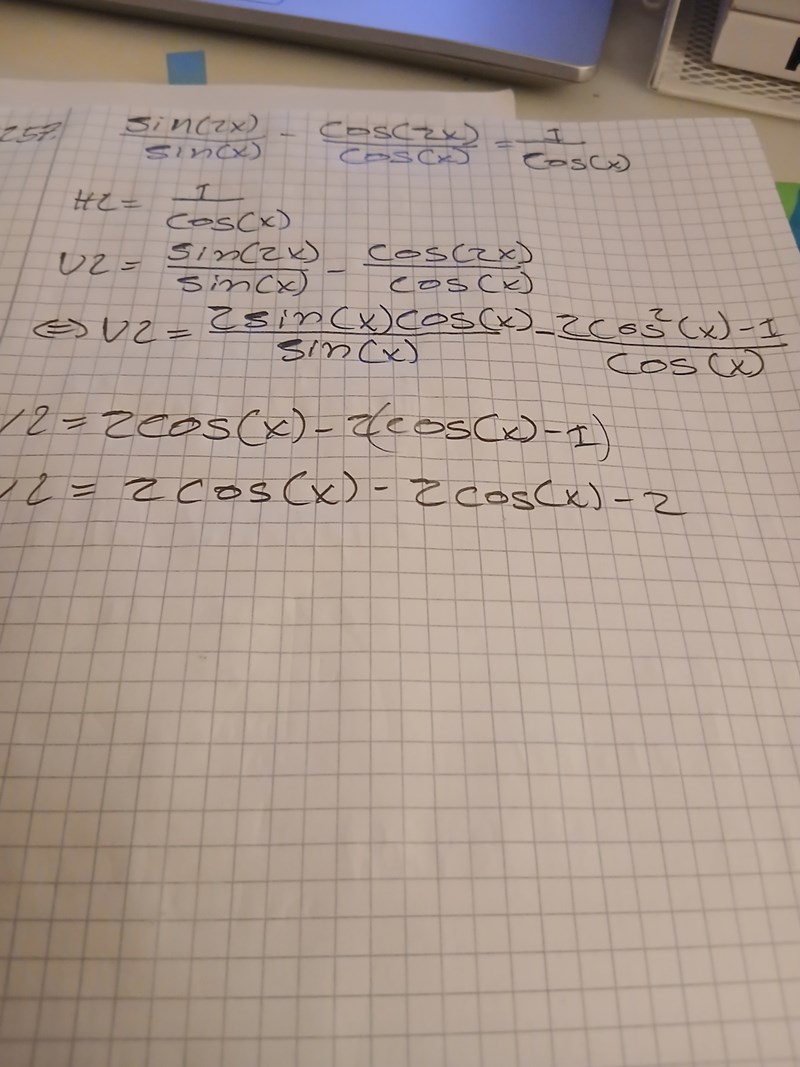 257. sin(2x)/sin(x) - cos(2x)/cos(x) = 1/cos(x)
HL = 1/cos(x)
VL = sin(2x)/sin(x) - cos(2x)/cos(x)
⇔ VL = 2sin(x)cos(x)/sin(x) - 2cos²(x)-1/cos(x)
VL = 2cos(x) - 2(cos(x)-1)
VL = 2cos(x) - 2cos(x) - 2